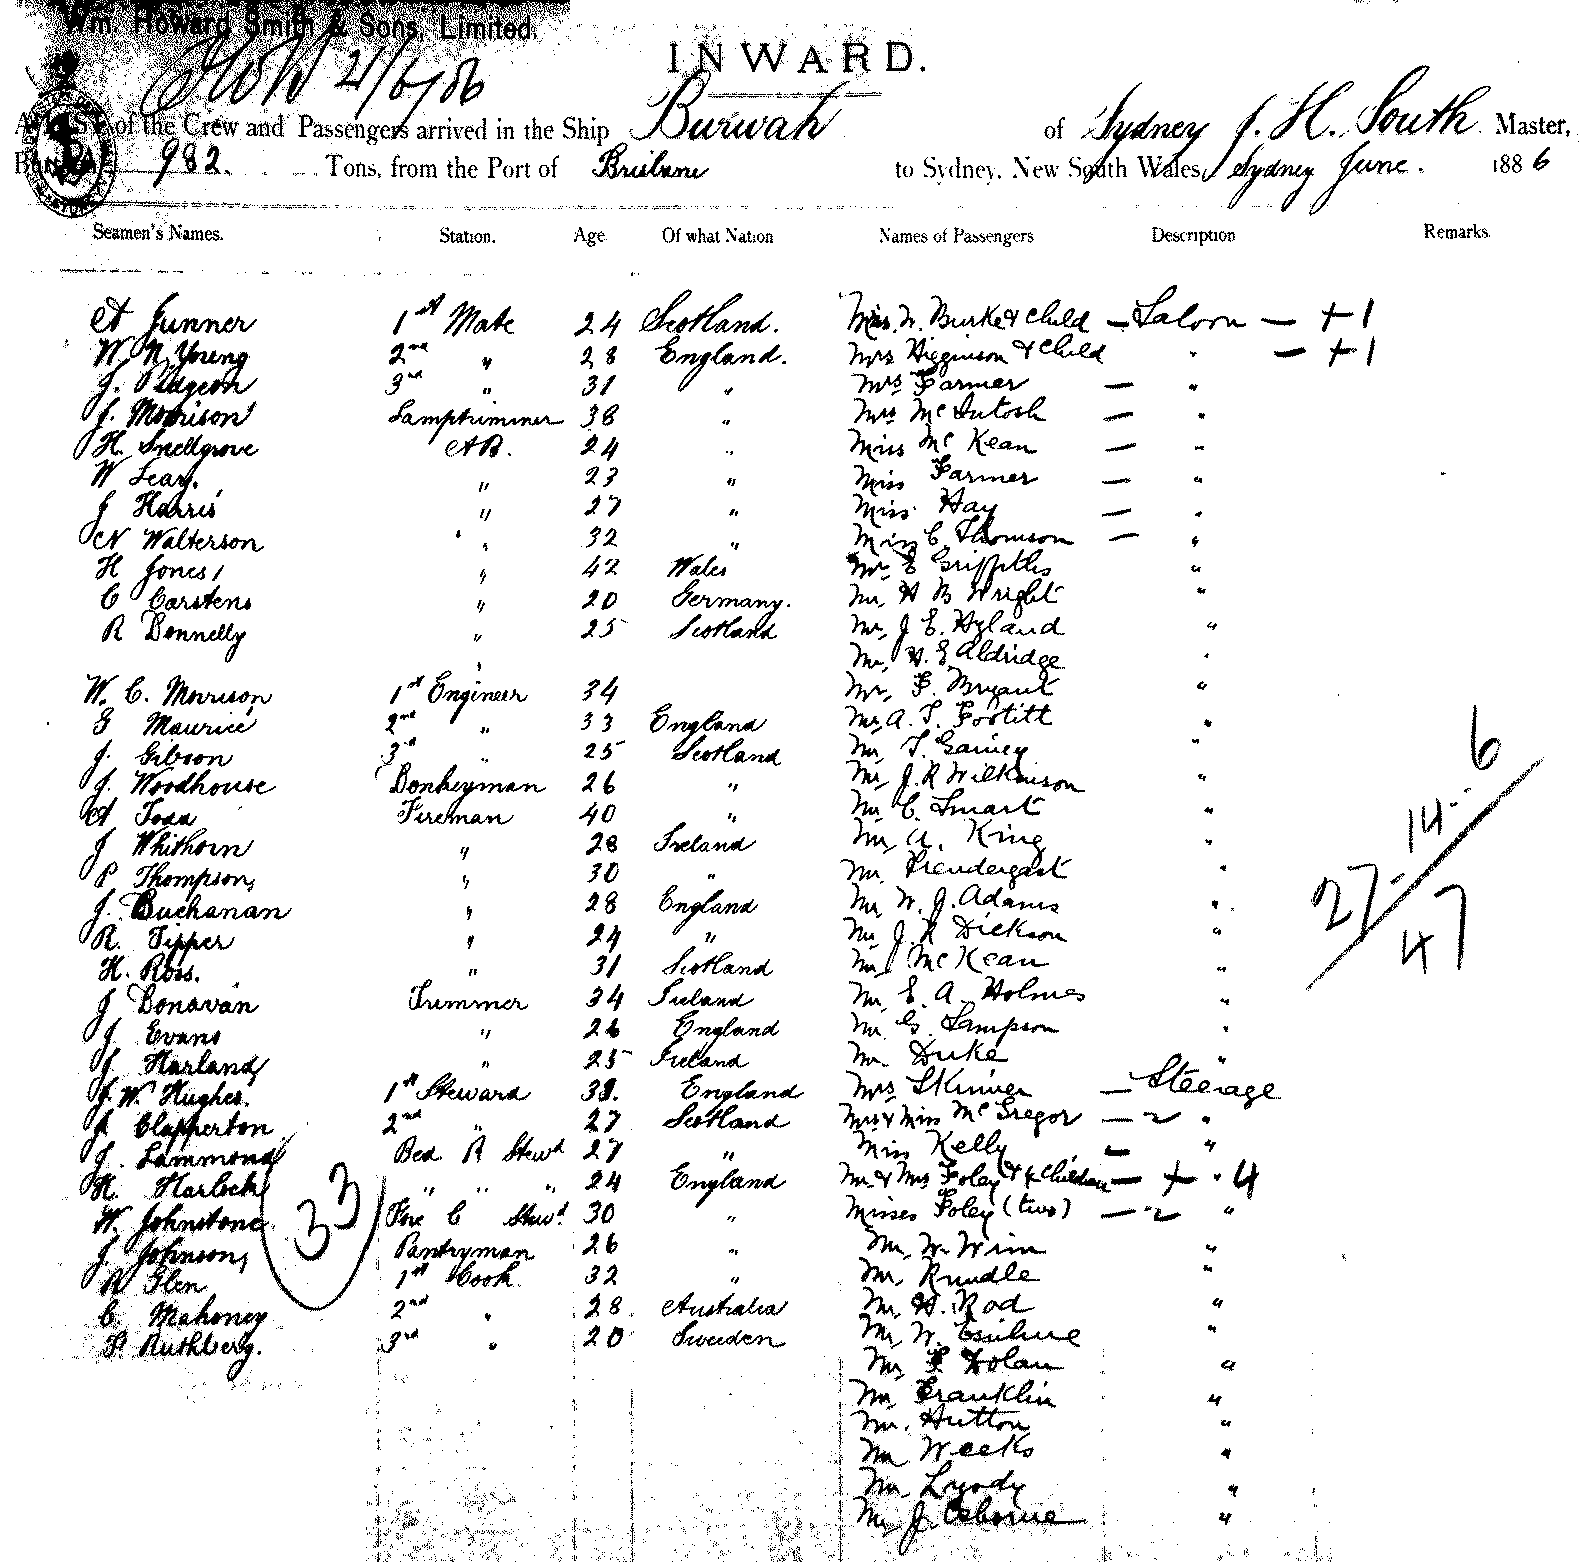 Wm. Howard Smith & Sons, Limited.
21/6/86
INWARD.
A LIST of the Crew and Passengers arrived in the Ship Burwah of Sydney J. H. South Master,
Burthen 982. Tons, from the Port of Brisbane to Sydney, New South Wales, Sydney June. 1886
Seamen's Names. Station. Age Of what Nation Names of Passengers Description Remarks.
A Gunner 1st Mate 24 Scotland. Miss N. Burke & Child — Saloon — + 1
W. N. Young 2nd " 28 England. Mrs Higginson & Child " — + 1
J. Pidgeon 3rd " 31 " Mrs Farmer — "
J. Morrison Lamptrimmer 38 " Mrs McIntosh — "
H. Snellgrove AB. 24 " Miss McKean — "
W Leary. " 23 " Miss Farmer — "
J Harris " 27 " Miss Hay — "
N Walterson " 32 " Miss C Thomson — "
H Jones " 42 Wales Mr E Griffiths "
C Carstens " 20 Germany. Mr H B Wright "
R Donnelly " 25 Scotland Mr J E. Hyland "
Mr H. E Aldridge "
W. C. Morrison 1st Engineer 34 Mr F. Bryant "
G Maurice 2nd " 33 England Mr A. T. Fostitt "
J. Gibson 3rd " 25 Scotland Mr T. Gainey "
J. Woodhouse Donkeyman 26 " Mr J. R Wilkinson "
A Todd Fireman 40 " Mr C. Smart "
J Whithorn " 28 Ireland Mr A. King "
P Thompson, " 30 " Mr Prendergast "
J. Buchanan " 28 England Mr W. J. Adams "
R. Tipper " 24 " Mr J. R Dickson "
H. Ross. " 31 Scotland Mr J McKean "
J Donavan Trimmer 34 Ireland Mr E. A. Holmes "
J Evans " 26 England Mr G. Sampson "
J Harland " 25 Ireland Mr Duke "
J. W. Hughes. 1st Steward 31. England Mrs Skinner — Steerage
J. Clapperton 2nd " 27 Scotland Mrs & Miss McGregor — 2 "
J. Lammond Bed R Stewd 27 " Miss Kelly — "
H. Harlock " " " 24 England Mr & Mrs Foley & 4 Children — + " 4
W. Johnstone Fore C Stewd 30 " Misses Foley (two) — 2 "
J. Johnson, Pantryman 26 " Mr W. Wim "
R Glen 1st Cook 32 " Mr Rundle "
C. Mahoney 2nd " 28. Australia Mr H. Rod "
P Ruthberg. 3rd " 20 Sweden Mr W. "
Mr F Dolan "
Mr Franklin "
Mr. Hutton "
Mr Weeks "
Mr "
Mr J. Osborne "
33
6
14
27
47